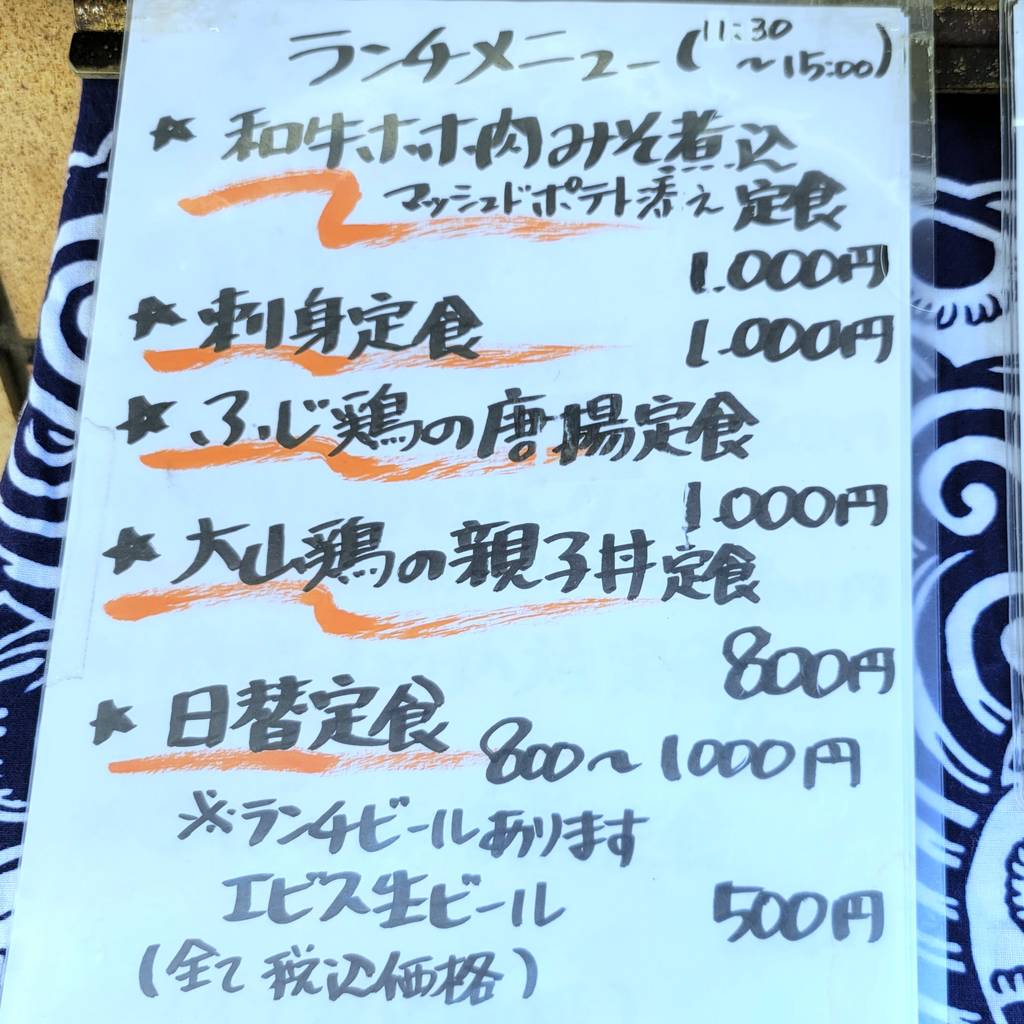 ランチメニュー (11:30
～15:00)
★ 和牛ホホ肉みそ煮込
マッシュドポテト添え 定食
1.000円
★ 刺身定食 1.000円
★ ふじ鶏の唐揚定食
1.000円
★ 大山鶏の親子丼定食
800円
★ 日替定食 800～1000円
※ランチビールあります
エビス生ビール 500円
(全て税込価格)